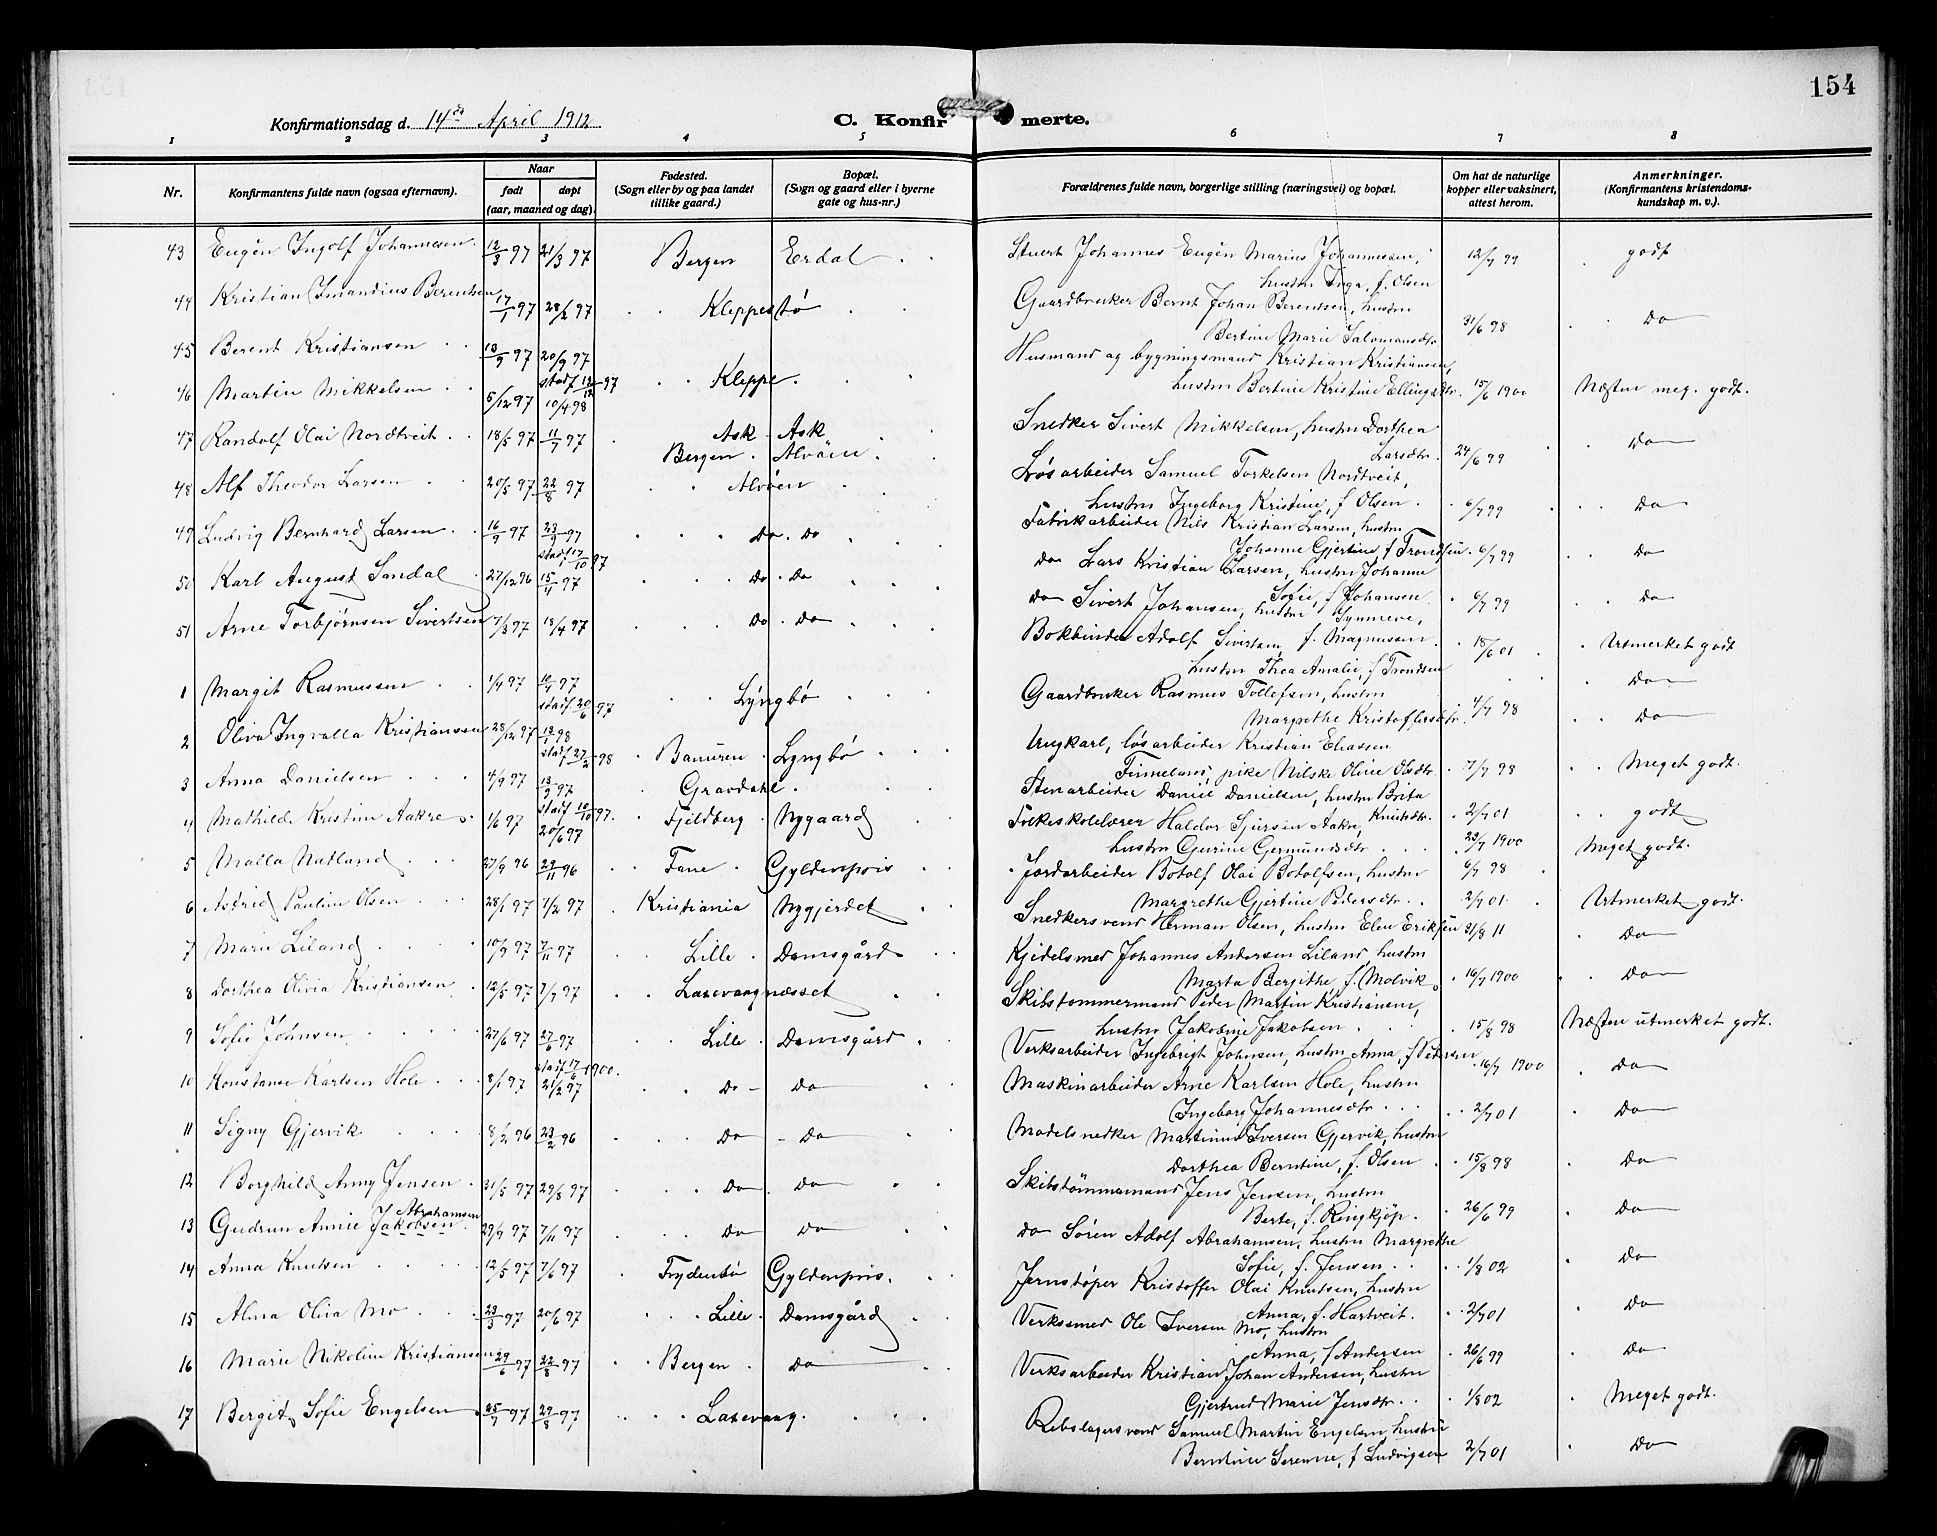 154
Konfirmationsdag d. 14de April 1912
C. Konfirmerte.
1 2 3 4 5 6 7 8
Nr. Konfirmantens fulde navn (ogsaa efternavn). Naar født døpt (aar, maaned og dag). Fødested. (Sogn eller by og paa landet tillike gaard.) Bopæl. (Sogn og gaard eller i byerne gate og hus-nr.) Forældrenes fulde navn, borgerlige stilling (næringsvei) og bopæl. Om hat de naturlige kopper eller vaksinert, attest herom. Anmerkninger. (Konfirmantens kristendomskundskap m. v.).
43 Eugén Ingolf Johannessen 12/3 97 21/3 97 Bergen Erdal Stuert Johannes Eugén Marius Johannessen, 12/7 99 godt
hustru Inga, f. Olsen
44 Kristian Amandius Berentsen 17/1 97 28/2 97 Kleppestø Gaardbruker Bernt Johan Berentsen, hustru
Bertine Marie Salomonsdtr. 31/6 98 Do
45 Berent Kristiansen 13/9 97 20/9 97 stadf 19/12 97 Kleppe Husmand og bygningsmand Kristian Kristiansen,
hustru Bertine Kristine Ellingsdtr. 15/6 1900 Næsten meg. godt.
46 Martin Mikkelsen 5/12 97 10/4 98 Ask Ask Snedker Sivert Mikkelsen, hustru Dorthea
Larsdtr. 24/6 99 Do
47 Randolf Olai Nordtveit 18/5 97 11/7 97 Bergen Alvøen Løsarbeider Samuel Torkelsen Nordtveit,
hustru Ingeborg Kristine, f Olsen 6/7 99 Do
48 Alf Theodor Larsen 20/5 97 22/8 97 Alvøen Fabrikarbeider Nils Kristian Larsen, hustru
Johanne Gjertine, f Trondsen 6/7 99 Do
49 Ludvig Bernhard Larsen 16/9 97 23/9 97 stadf 17/10 97 Do Do Do Lars Kristian Larsen, hustru Johanne
Sofie, f Johansen 6/7 99 Do
50 Karl August Sandal 27/12 96 15/4 97 Do Do Do Sivert Johansen, hustru Synneve,
f. Magnussen 18/6 01 Utmerket godt
51 Arne Torbjørnsen Sivertsen 7/3 97 18/4 97 Do Do Bokbinder Adolf Sivertsen,
hustru Thea Amalie, f Trondsen Do
1 Margit Rasmussen 1/4 97 10/4 97 stadf 20/6 97 Lyngbø Gaardbruker Rasmus Tollefsen, hustru
Margrethe Kristoffersdtr. 4/7 98 Do
2 Oliva Ingvalla Kristianssen 28/12 97 12/1 98 stadf 27/2 98 Bamren Lyngbø Ungkarl, løsarbeider Kristian Eliassen
Finneland, pike Nilske Oline Olsdtr. 7/7 98 Meget godt.
3 Anna Danielsen 4/9 97 13/9 97 stadf 10/10 97 Gravdahl Stenarbeider Daniel Danielsen, hustru Brita
Knutsdtr. 2/7 01 godt
4 Mathilde Kristine Aakre 1/6 97 20/6 97 Fjeldberg Nygaard Folkeskolelærer Haldor Sjursen Aakre,
hustru Gurine Germundsdtr. 23/7 1900 Meget godt.
5 Malla Natland 27/9 96 29/11 96 Fane Gyldenpris Jordarbeider Botolf Olai Botolfsen, hustru 6/7 98
Margrethe Gjertine Pedersdtr. 2/7 01 Utmerket godt.
6 Astrid Pauline Olsen 28/1 97 7/2 97 Kristiania Nygjerdet Snedkersvend Herman Olsen, hustru Elen Eriksen 31/8 11 Do
7 Marie Liland 10/9 97 7/11 97 Lille Damsgård Kjedelsmed Johannes Andersen Liland, hustru
Marta Bergithe, f. Molvik 16/7 1900 Do
8 Dorthea Olivia Kristiansen 12/5 97 7/7 97 Laxevaagnæsset Skibstømmermand Peder Martin Kristiansen,
hustru Jakobine Jakobsen 15/8 98 Næsten utmerket godt.
9 Sofie Johnsen 27/6 97 27/6 97 stadf 17/6 1900. Lille Damsgård Verksarbeider Ingebrigt Johnsen, hustru Anna, f Petersen 16/7 1900 Do
10 Konstanse Karlsen Hole 8/1 97 21/2 97 Do Do Maskinarbeider Arne Karlsen Hole, hustru
Ingeborg Johannesdtr. 2/7 01 Do
11 Signy Gjervik 8/2 96 23/2 96 Do Do Modelsnedker Martinus Iversen Gjervik, hustru
Dorthea Berntine, f. Olsen 15/8 98 Do
12 Borghild Anny Jensen 31/5 97 29/8 97 Do Do Skibstømmermand Jens Jensen, hustru
Berte, f. Ringkjøp. 26/6 99 Do
Abrahamsen
13 Gudrun Annie Jakobsen 29/9 97 7/11 97 Do Do Do Søren Adolf Abrahamsen, hustru Margrethe
Sofie, f. Jensen 1/8 02 Do
14 Anna Knutsen 12/5 97 7/6 97 Frydenbø Gyldenpris Jernstøper Kristoffer Olai Knutsen, hustru
Anna, f. Hartveit. 2/7 01 Do
15 Alma Olia Mo 23/3 97 20/6 97 Lille Damsgård Verksmed Ole Iversen Mo, hustru
Anna, f Andersen 26/6 99 Do
16 Marie Nikoline Kristiansen 29/6 97 22/8 97 Bergen Do Verksarbeider Kristian Johan Andersen, hustru
Gjertrud Marie Jensdtr. 1/8 02 Meget godt.
17 Bergit Sofie Engelsen 25/7 97 29/8 97 Laxevaag Rebslagersvend Samuel Martin Engelsen, hustru
Berntine Serenne, f Ludvigsen 2/7 01 Do